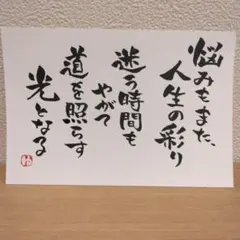 悩みもまた、
人生の彩り
迷う時間も
やがて
道を照らす
光となる